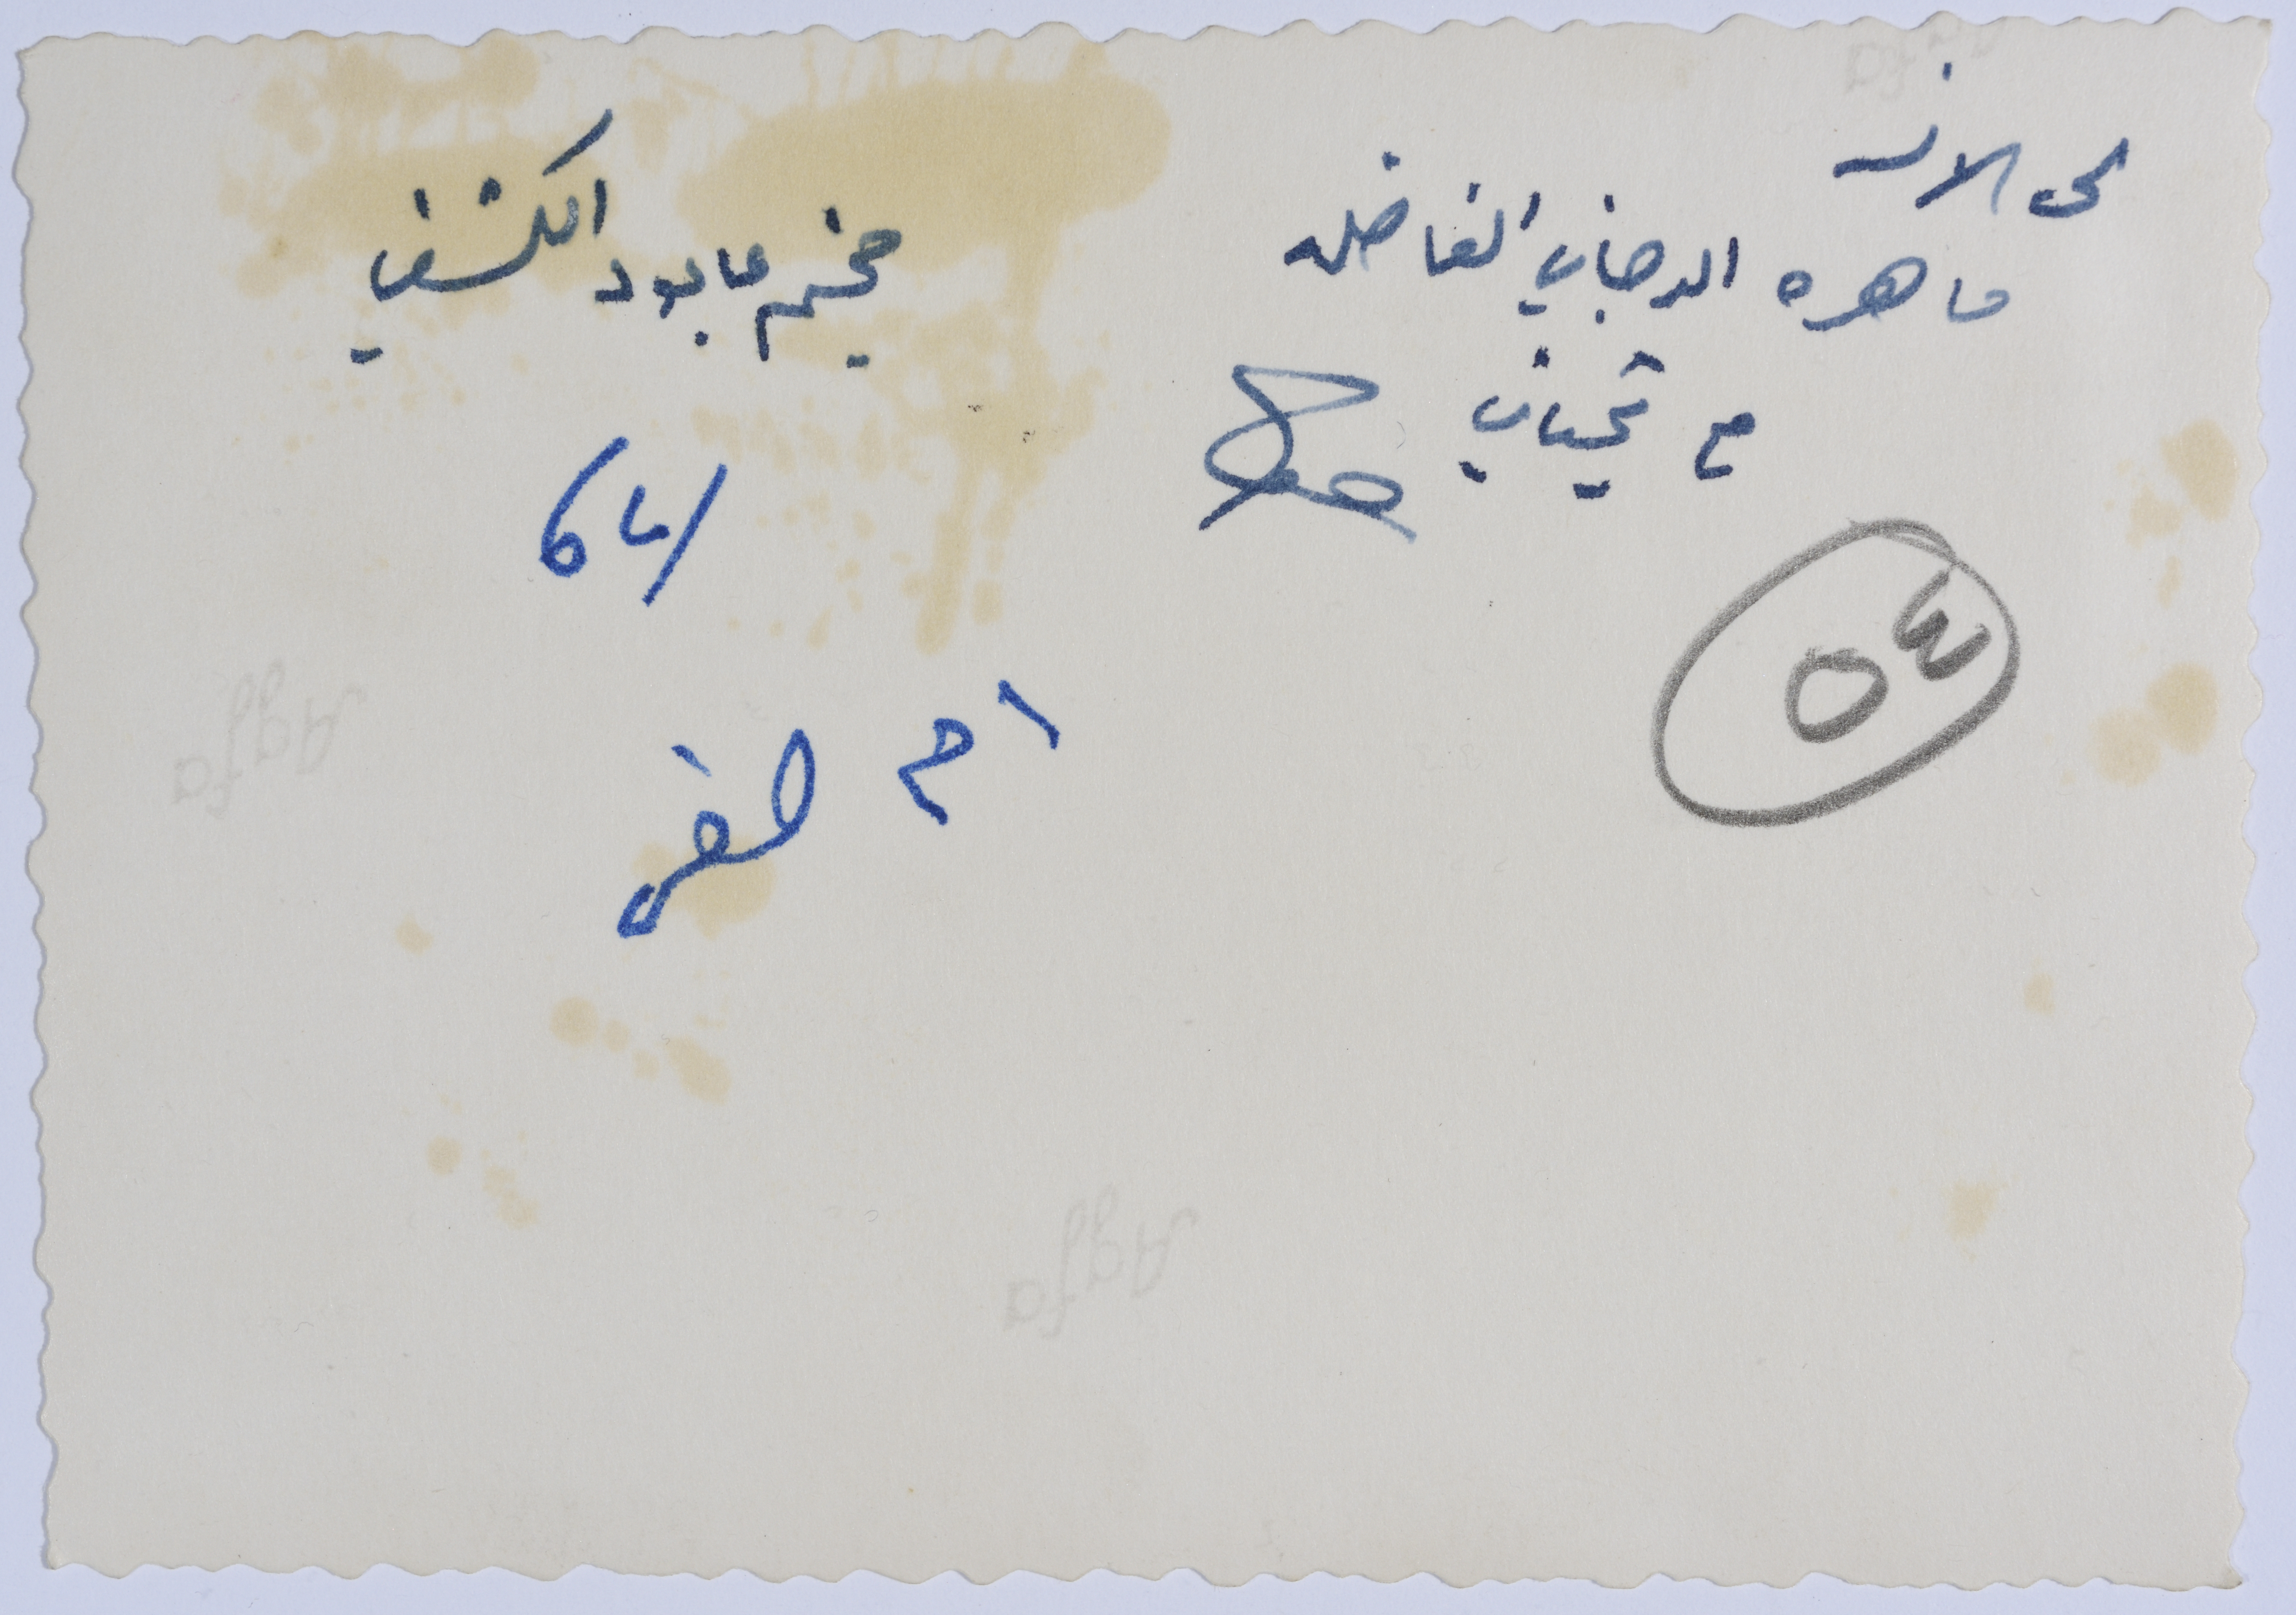 الى الانسه
ماهره الدجاني الفاضله
مع تحياتي
مخيم عابود الكشفي
64/
ام
٥٣
Agfa
Agfa
Agfa